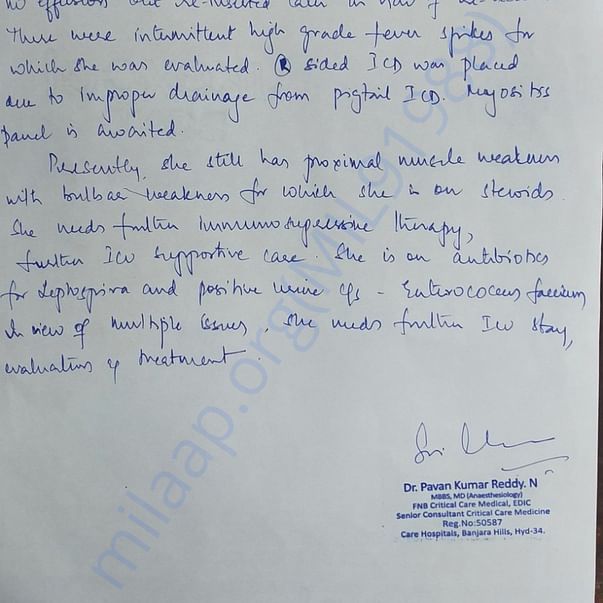 no effusion but re-inserted in view of
There were intermittent high grade fever spikes for
which she was evaluated. Ⓡ sided ICD was placed
due to improper drainage from pigtail ICD. Myositis
panel is awaited.
Presently, she still has proximal muscle weakness
with bulbar weakness for which she is on steroids.
She needs further immunosupressive therapy,
further ICU supportive care. She is on antibiotics
for Leptospira and positive urine c/s - Enterococcus faecium
In view of multiple issues she needs further ICU stay,
evaluation & treatment.
milaap.org(MIL91988)
Dr. Pavan Kumar Reddy. N
MBBS, MD (Anaesthesiology)
FNB Critical Care Medical, EDIC
Senior Consultant Critical Care Medicine
Reg.No:50587
Care Hospitals, Banjara Hills, Hyd-34.